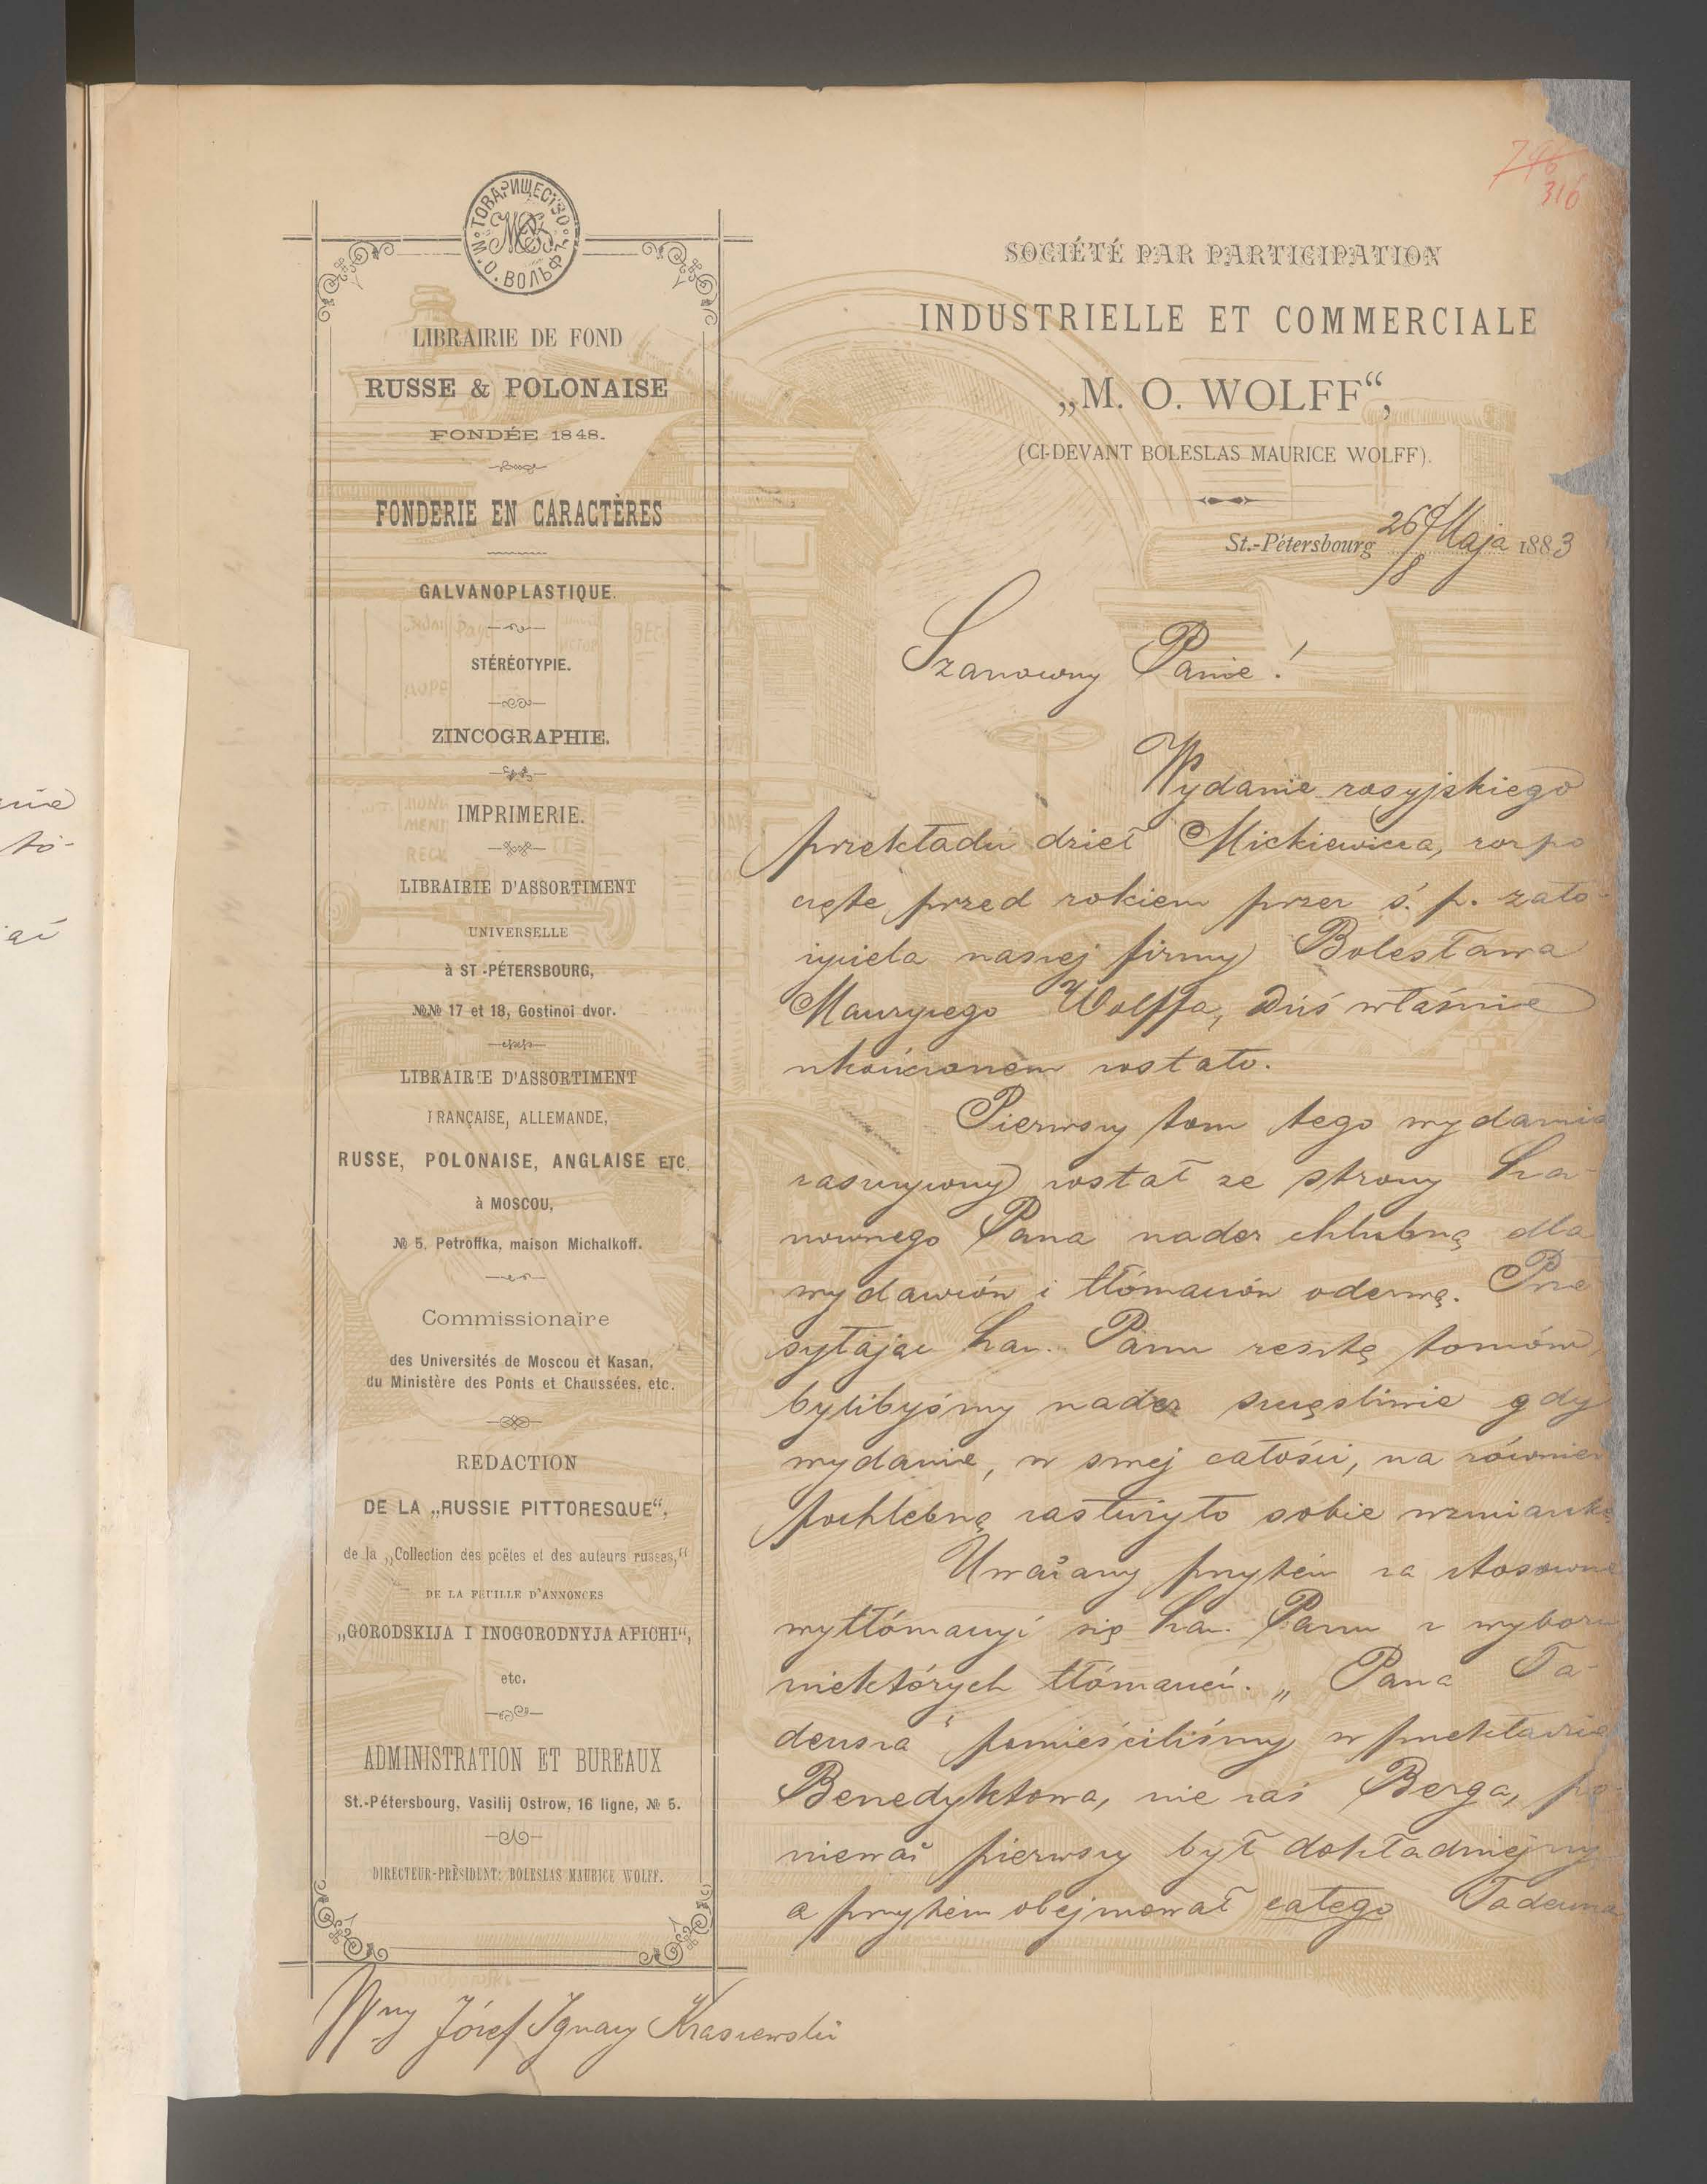 796
316
ТОВАРИЩЕСТВО
М. О. ВОЛЬФЪ
LIBRAIRIE DE FOND
RUSSE & POLONAISE
FONDÉE 1848.
FONDERIE EN CARACTÈRES
GALVANOPLASTIQUE.
STÉRÉOTYPIE.
ZINCOGRAPHIE.
IMPRIMERIE.
LIBRAIRIE D'ASSORTIMENT
UNIVERSELLE
à ST.-PÉTERSBOURG,
№№ 17 et 18, Gostinoi dvor.
LIBRAIRIE D'ASSORTIMENT
FRANÇAISE, ALLEMANDE,
RUSSE, POLONAISE, ANGLAISE ETC.
à MOSCOU,
№ 5, Petroffka, maison Michalkoff.
Commissionaire
des Universités de Moscou et Kasan,
du Ministère des Ponts et Chaussées, etc.
REDACTION
DE LA „RUSSIE PITTORESQUE“,
de la „Collection des poëtes et des auteurs russes,“
DE LA FEUILLE D'ANNONCES
„GORODSKIJA I INOGORODNYJA AFICHI“,
etc.
ADMINISTRATION ET BUREAUX
St.-Pétersbourg, Vasilij Ostrow, 16 ligne, № 5.
DIRECTEUR-PRÉSIDENT: BOLESLAS MAURICE WOLFF.
SOCIÉTÉ PAR PARTICIPATION
INDUSTRIELLE ET COMMERCIALE
„M. O. WOLFF“,
(CI-DEVANT BOLESLAS MAURICE WOLFF).
St.-Pétersbourg 26 Maja 1883
Szanowny Panie!
Wydanie rosyjskiego
przekładu dzieł Mickiewicza, rozpo
częte przed rokiem przez ś. p. zało-
życiela naszej firmy Bolesława
Maurycego Wolffa, dziś właśnie
ukończonem zostało.
Pierwszy tom tego wydania
zaszczycony został ze strony Sza-
nownego Pana nader chlubną dla
wydawców i tłómaczów odezwą. Prze
syłając Szan. Panu resztę tomów,
bylibyśmy nader szczęśliwie gdy
wydanie, w swej całości, na równie
pochlebną zasłużyło sobie wzmiankę
Uważamy przytém za stosowne
wytłómaczyć się Szan. Panu z wyboru
niektórych tłómaczeń. „Pana Ta-
deusza“ pomieściliśmy w przekładzie
Benedyktowa, nie zaś Berga, po-
nieważ pierwszy był dokładniejszy
a przytém obejmował całego Tadeusza
Wny Józef Ignacy Kraszewski